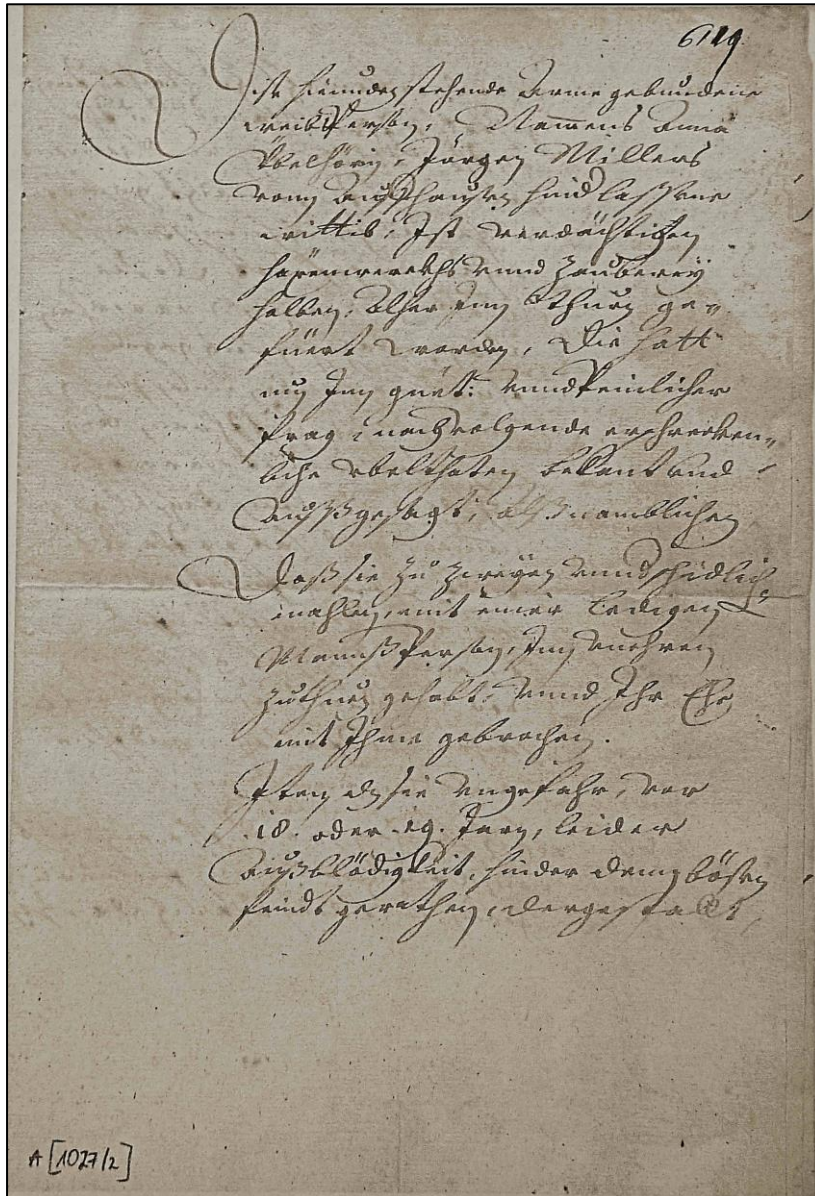 6129
Dise hieunden stehende Arme gebundene
weibsPerson, Namens Anna
Übelhörin, Jörgen Millers
vonn Aufhausen hindlassene
wittib, Ist verdächtigen
hexenwerckhs unnd Zauberey
halben, alher Inn Thurn ge-
füert worden, Die hatt
nun Inn güet: unnd Peinlicher
frag, nachvolgende erschrecken-
liche übelthaten bekant und
außgesagt, alß namblichen
Daß sie zu zweyen underschidlich
mahlen, mit einer ledigen
MannßPerson, Inn unehren
zuthuen gehabt, unnd Ihr Ehe
mit Ihme gebrochen.
Item dz sie ungefahr, vor
18. oder .19. Jarn, leider
Auß blödigkeit, hinder dem bösen
feindt gerathen, dergestalt,
A [1027/2]